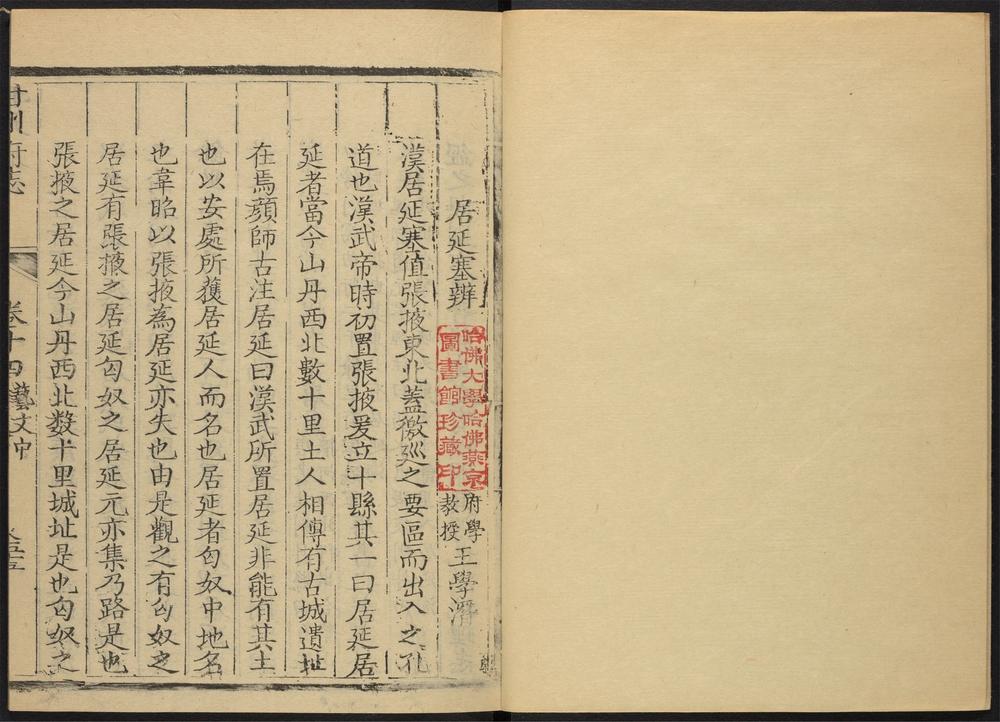 居延塞辨
哈佛大學哈佛燕京
圖書館珍藏印
府學
教授
王學潛
漢居延塞值張掖東北蓋徼廵之要區而出入之孔
道也漢武帝時初置張掖爰立十縣其一曰居延居
延者當今山丹西北數十里土人相傳有古城遺址
在焉顔師古注居延曰漢武所置居延非能有其土
也以安處所獲居延人而名也居延者匈奴中地名
也韋昭以張掖為居延亦失也由是觀之有匈奴之
居延有張掖之居延匈奴之居延元亦集乃路是也
張掖之居延今山丹西北数十里城址是也匈奴之
甘州府志
卷十四藝文中